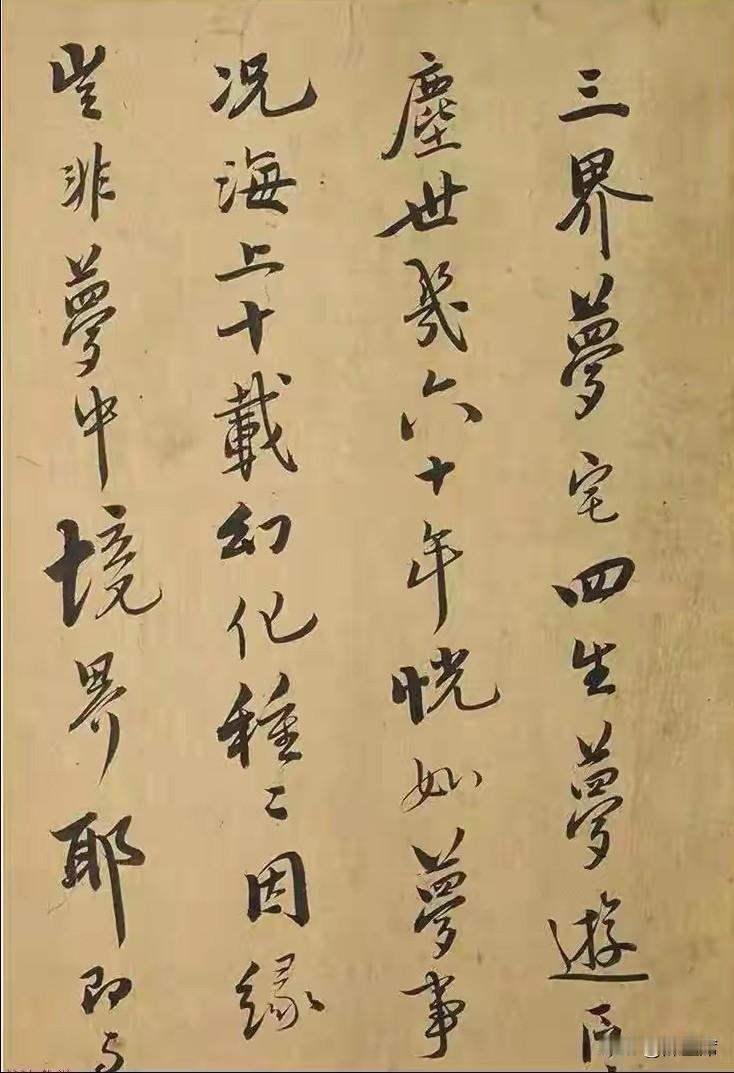 三界夢宅四生夢遊
塵世幾六十年恍如夢事
况海上十載幻化種〻因緣
豈非夢中境界耶即与